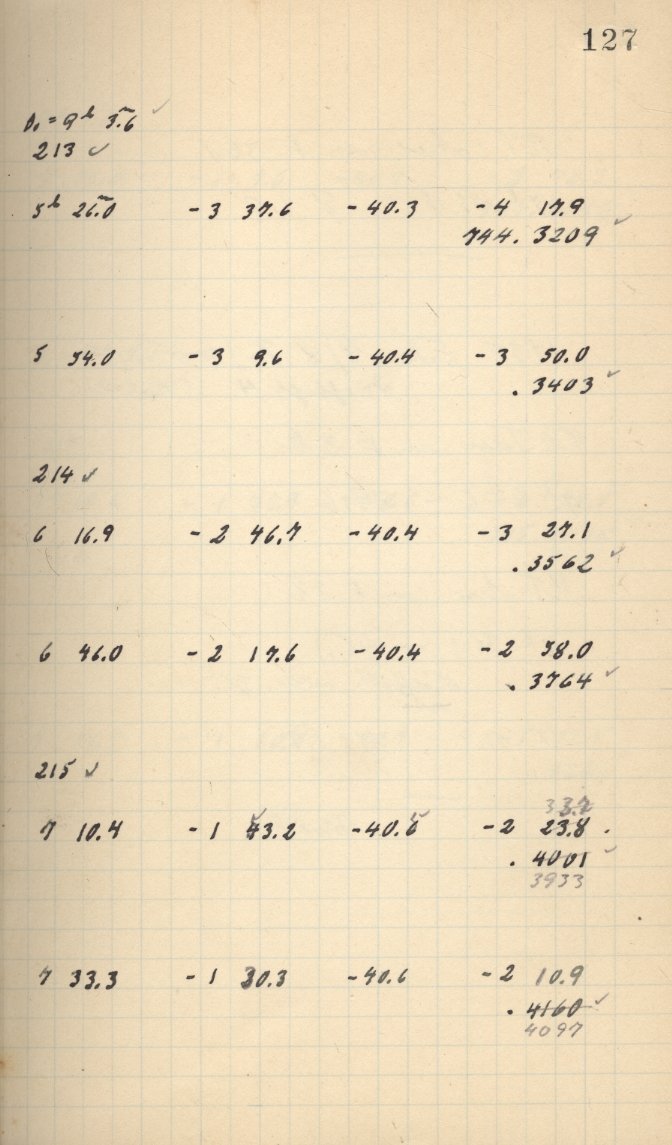 127
9ʰ 3ᵐ.6
213 ✓
5ʰ 26ᵐ.0 - 3 37.6 - 40.3 - 4 17.9
744. 3209 ✓
5 54.0 - 3 9.6 - 40.4 - 3 50.0
. 3403 ✓
214 ✓
6 16.9 - 2 46.7 - 40.4 - 3 27.1
. 3562 ✓
6 46.0 - 2 17.6 - 40.4 - 2 58.0
. 3764 ✓
215 ✓
7 10.4 - 1 - 2 23.8
. 4001 ✓
3933
7 33.3 - 1 30.3 - 40.6 - 2 10.9
. 4160 ✓
4097